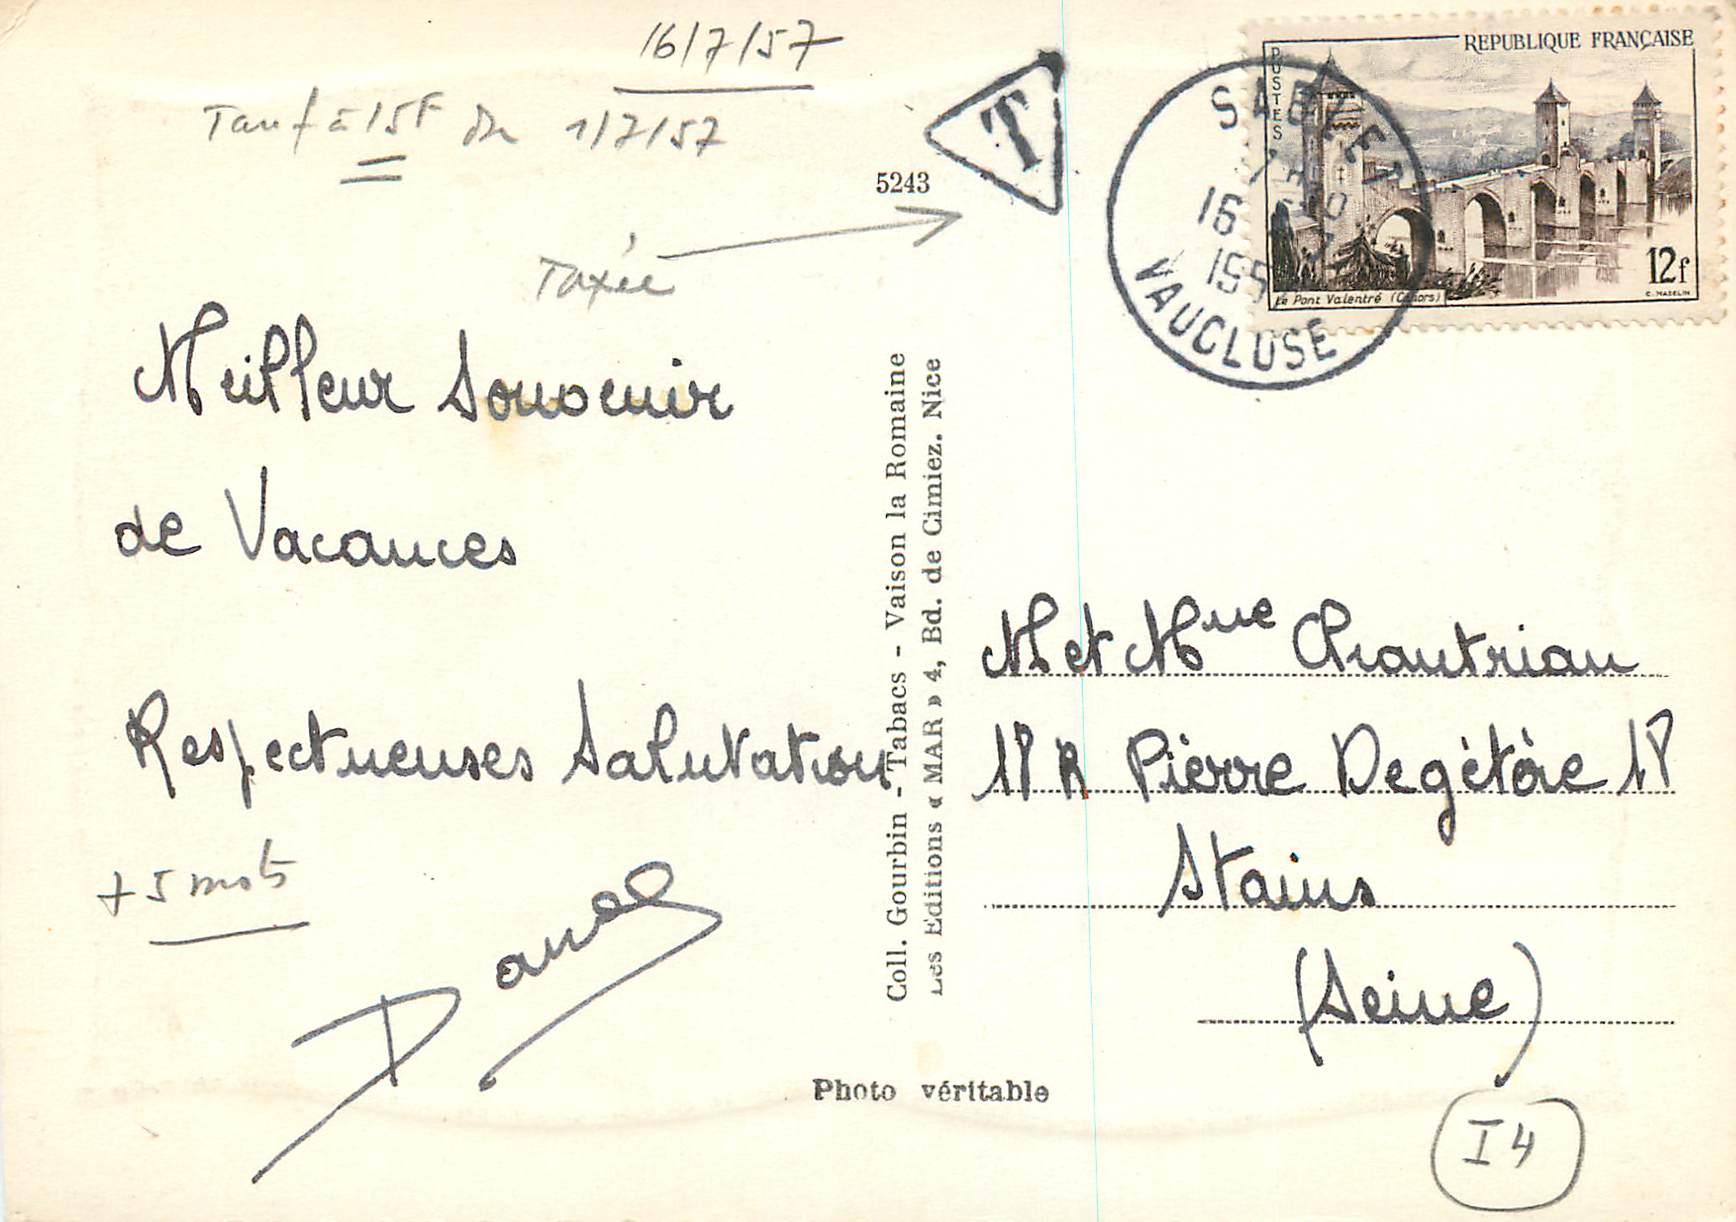 16/7/57
Tarif à 15F du 1/7/57
Taxée
T
5243
SABLET
16
195
VAUCLUSE
REPUBLIQUE FRANÇAISE
POSTES
12f
Le Pont Valentré (Cahors)
C. MAZELIN
Meilleur Souvenir
de Vacances
Respectueuses Salutation
+ 5 mots
Coll. Gourbin - Tabacs - Vaison la Romaine
Les Editions « MAR » 4, Bd. de Cimiez. Nice
M et Mme Chautrian
17 R Pierre Degétère 17
Stains
(Seine)
Photo véritable
I4